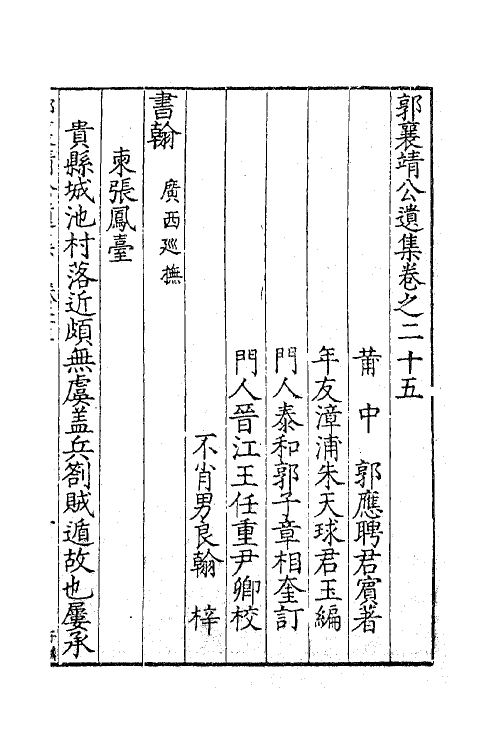 郭襄靖公遺集卷之二十五
莆中　郭應聘君賓著
年友漳浦朱天球君玉編
門人泰和郭子章相奎訂
門人晉江王任重尹卿校
不肖男良翰　梓
書翰　廣西廵撫
柬張鳳臺
貴縣城池村落近頗無虞盖兵劄賊遁故也屢承